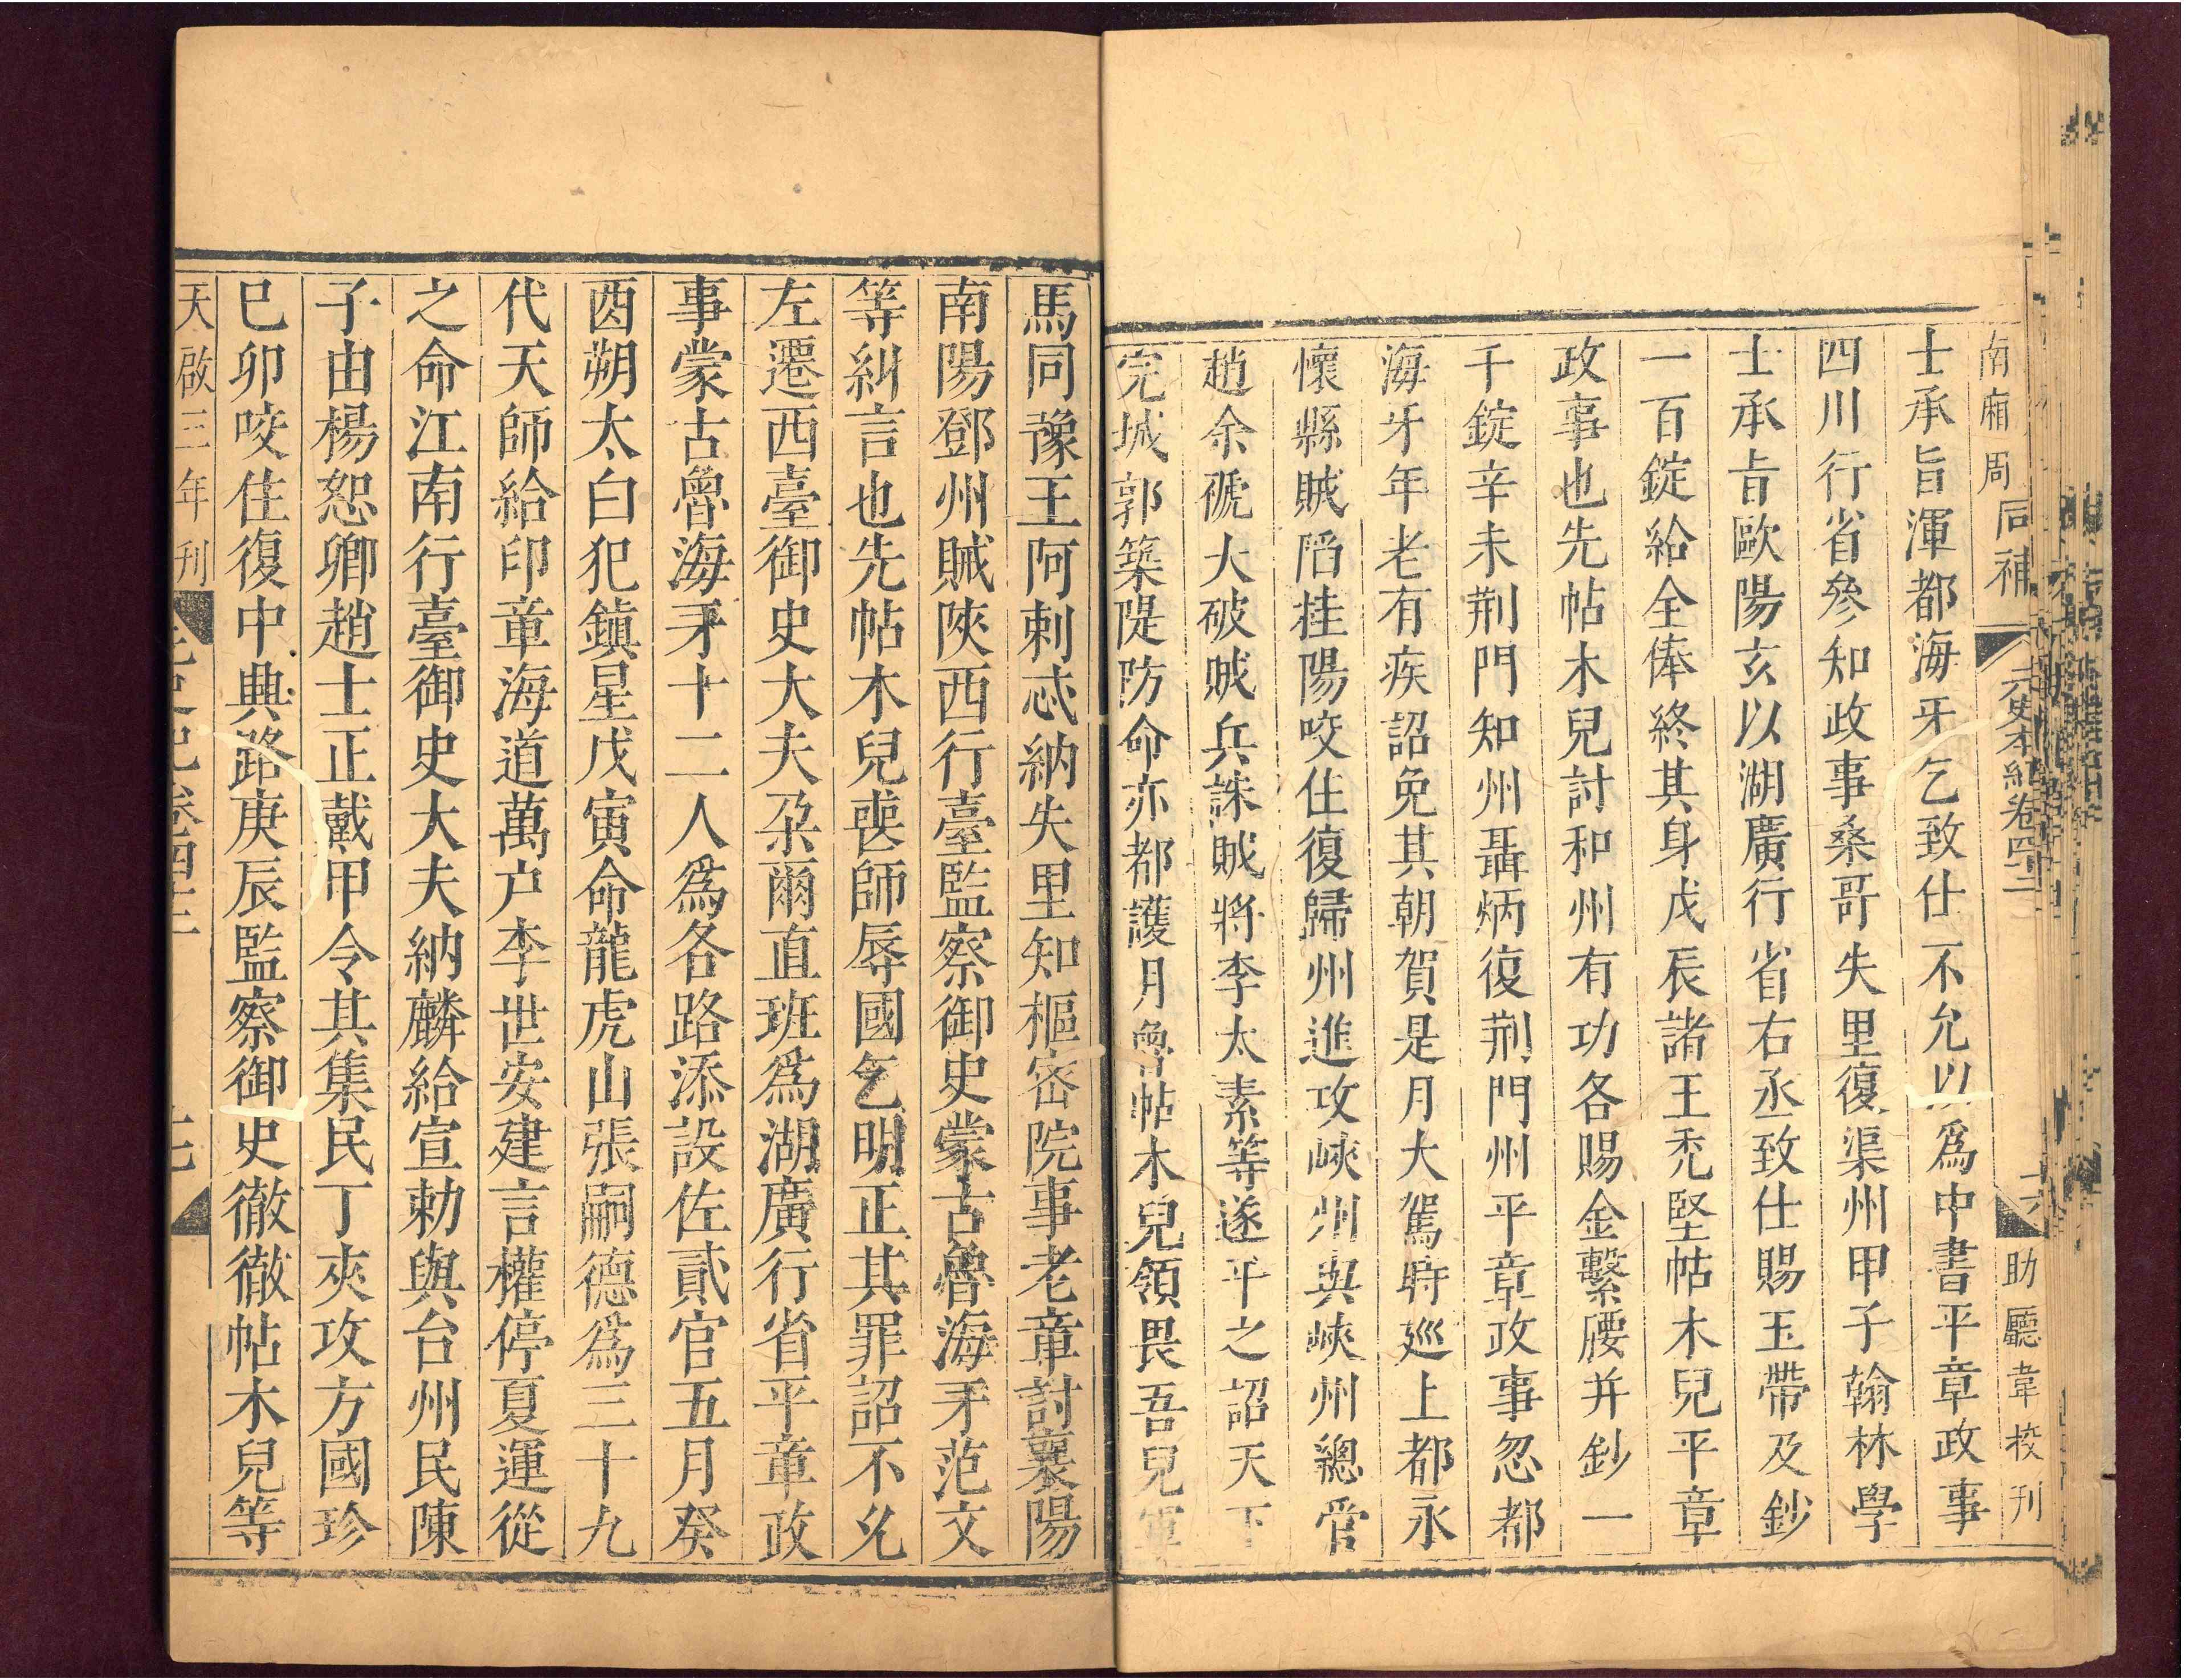 南廂周同補 元史本紀卷四二 十六 助廳韋校刊
士承旨渾都海牙乞致仕不允以爲中書平章政事
四川行省參知政事桑哥失里復渠州甲子翰林學
士承旨歐陽玄以湖廣行省右丞致仕賜玉帶及鈔
一百錠給全俸終其身戊辰諸王禿堅帖木兒平章
政事也先帖木兒討和州有功各賜金繫腰并鈔一
千錠辛未荆門知州聶炳復荆門州平章政事忽都
海牙年老有疾詔免其朝賀是月大駕時廵上都永
懷縣賊陷桂陽咬住復歸州進攻峽州與峽州總管
趙余褫大破賊兵誅賊將李太素等遂平之詔天下
完城郭築隄防命亦都護月魯帖木兒領畏吾兒軍
馬同豫王阿剌忒納失里知樞密院事老章討襄陽
南陽鄧州賊陜西行臺監察御史蒙古魯海牙范文
等糾言也先帖木兒喪師辱國乞明正其罪詔不允
左遷西臺御史大夫朶爾直班爲湖廣行省平章政
事蒙古魯海牙十二人爲各路添設佐貳官五月癸
酉朔太白犯鎮星戊寅命龍虎山張嗣德爲三十九
代天師給印章海道萬户李世安建言權停夏運從
之命江南行臺御史大夫納麟給宣勅與台州民陳
子由楊恕卿趙士正戴甲令其集民丁夾攻方國珍
巳卯咬住復中興路庚辰監察御史徹徹帖木兒等
天啟三年刊 元史紀卷四二 十七